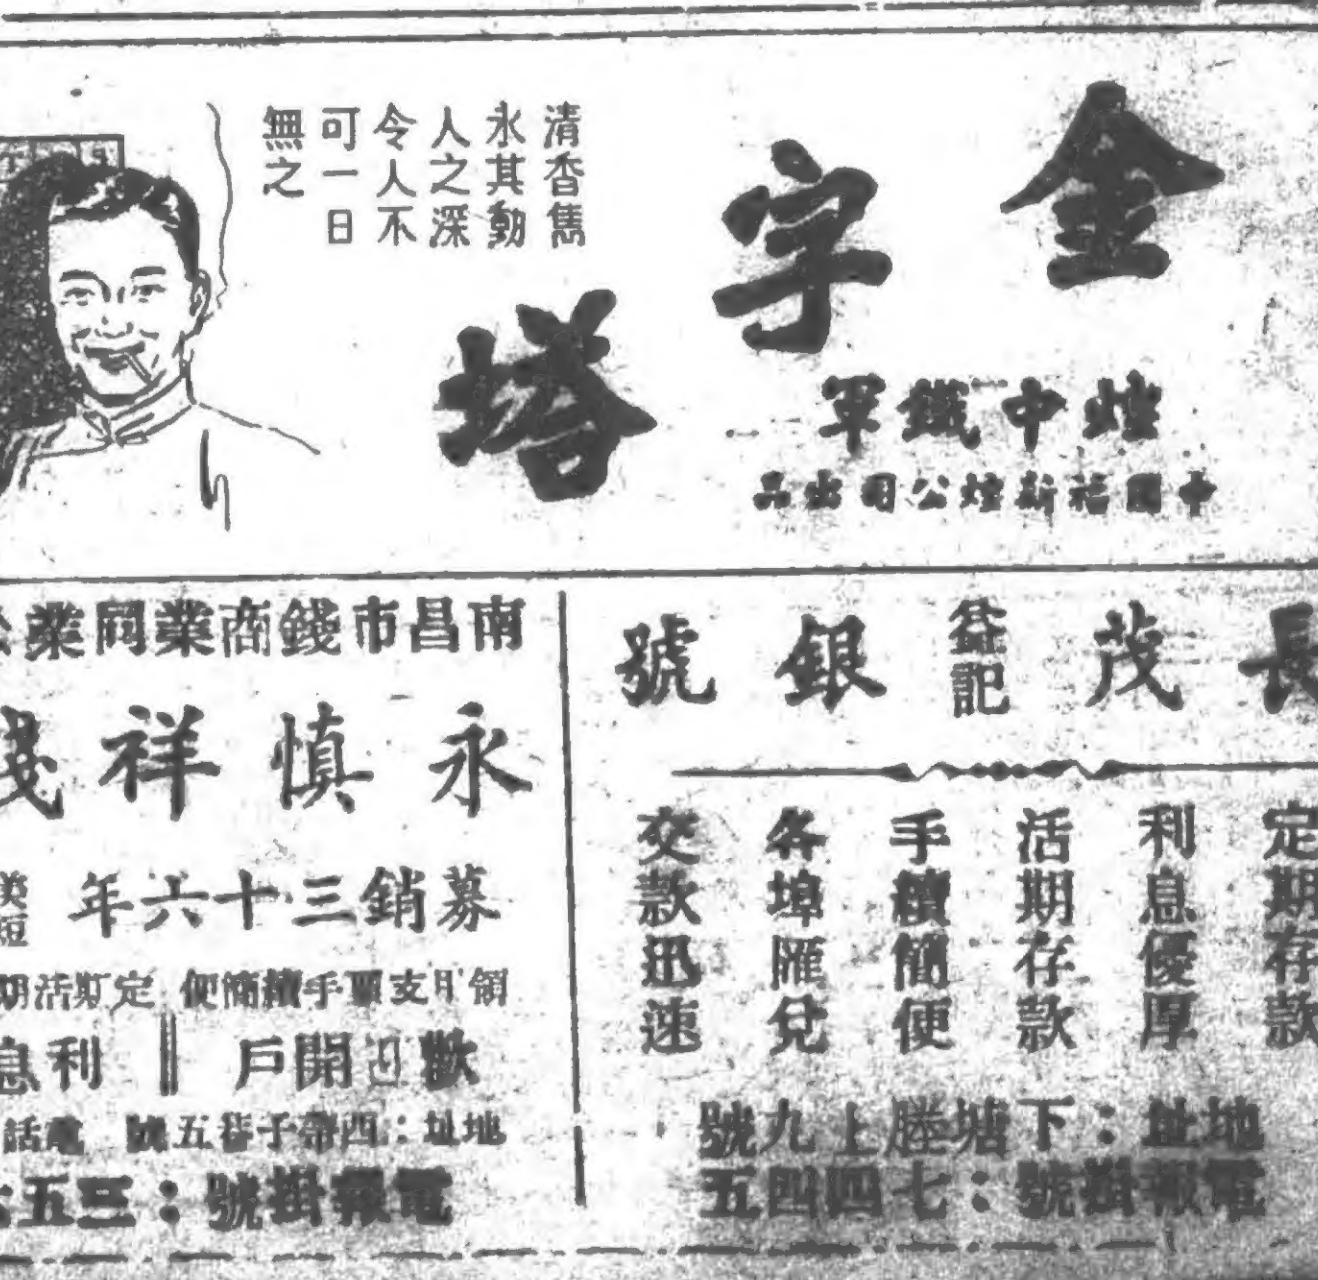 金字塔
煙中鐵軍
中國福新煙公司出品
清香雋
永其動
人之深
令人不
可一日
無之
長茂益記銀號
定期存款
利息優厚
活期存款
手續簡便
各埠匯兌
交款迅速
地址：下塘塍上九號
電報掛號：七四四五
南昌市錢商業同業
永慎祥
募銷三十六年
領用支票手續簡便 定期活期
歡迎開戶 利息
地址：西帶子巷五號 電話
電報掛號：三五